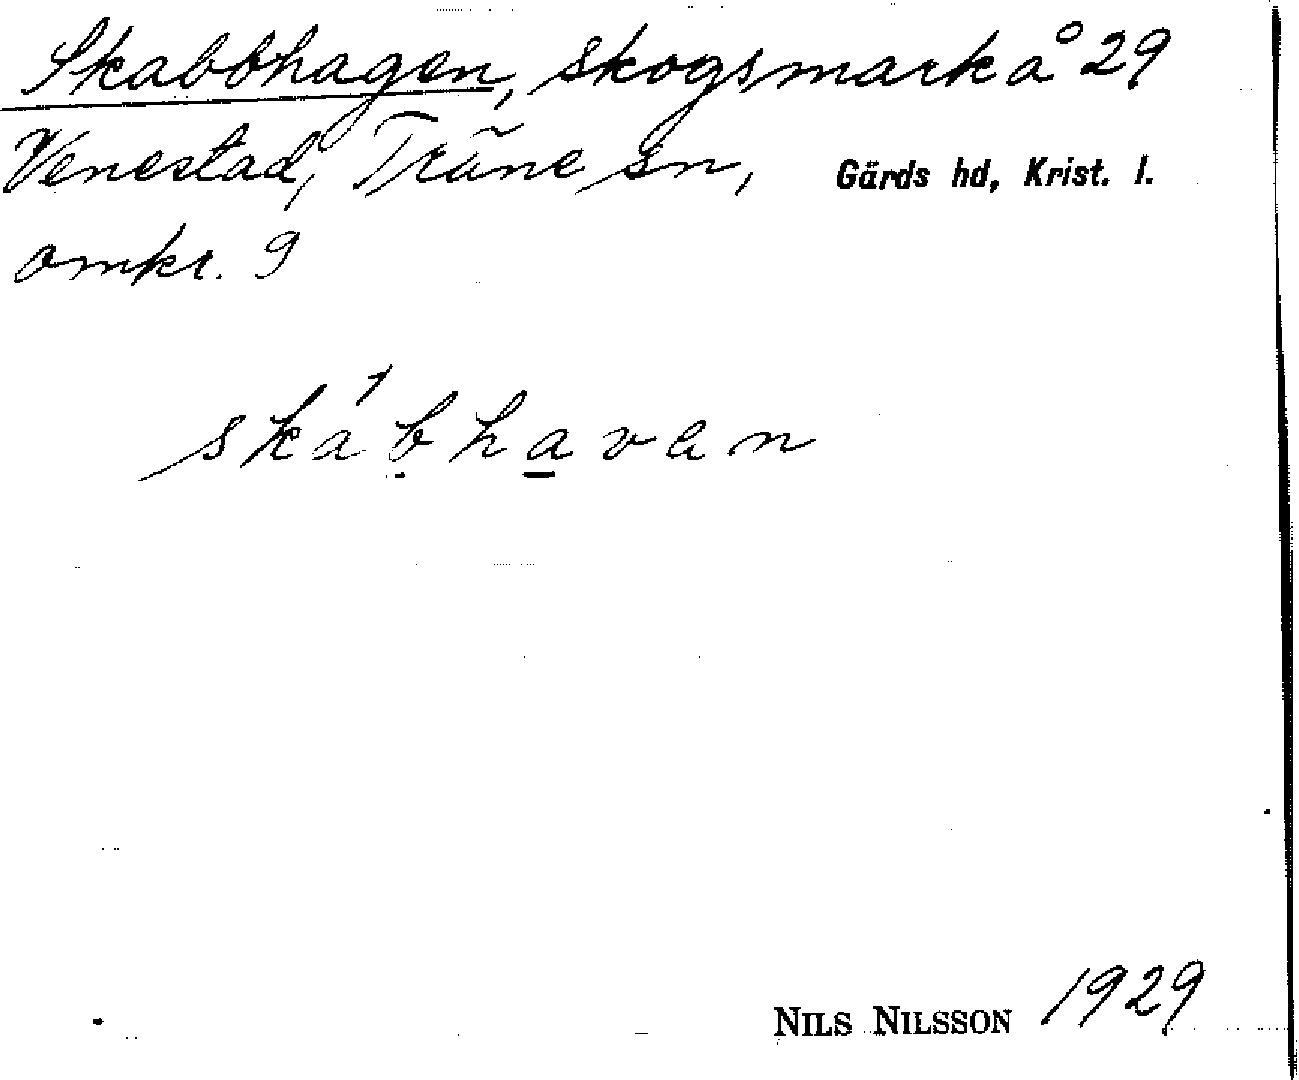 Skabbhagen, skogsmark å 29
Venestad, Träne sn, Gärds hd, Krist. l.
omkr. 9
skábhavan
NILS NILSSON 1929